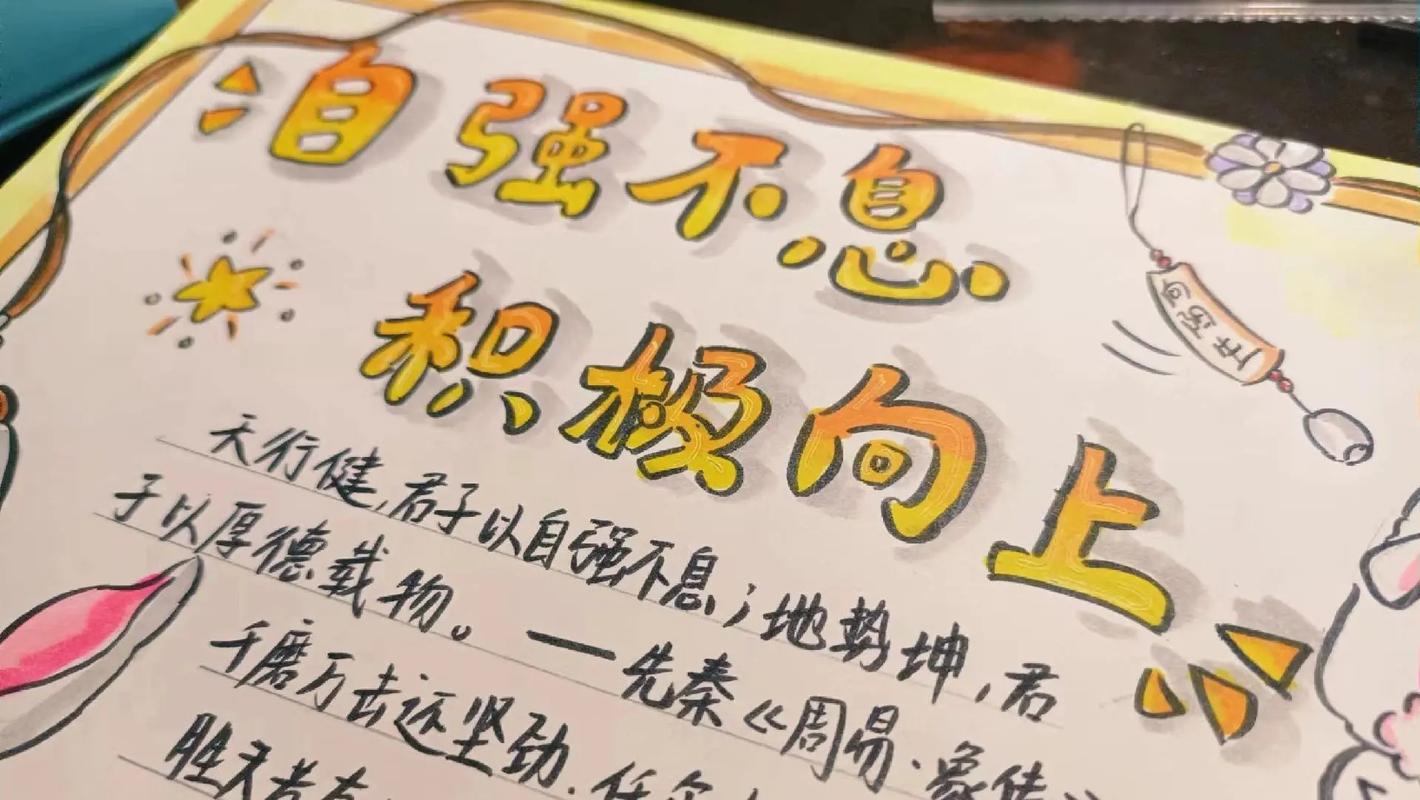 自强不息
积极向上
天行健,君子以自强不息;地势坤,君
子以厚德载物。——先秦《周易·象传》
千磨万击还坚劲,任尔
胜